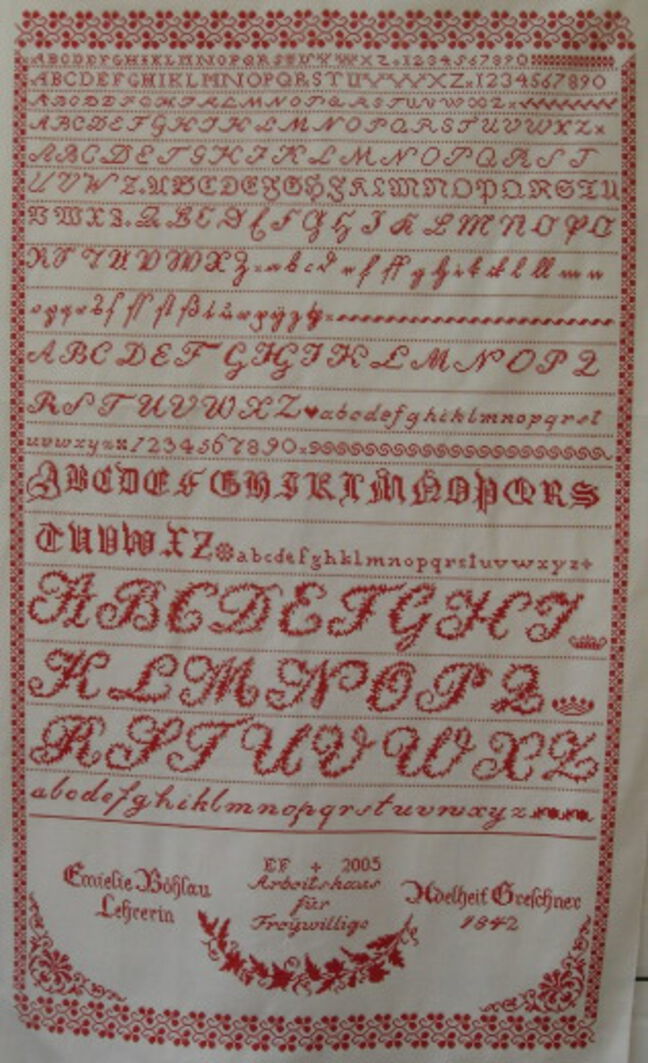 ABCDEFGHIKLMNOPQRSTUVWXZ 1234567890
ABCDEFGHIKLMNOPQRSTUVWXZ 1234567890
ABCDEFGHIKLMNOPQRSTUVWXZ
ABCDEFGHIKLMNOPQRSTUVWXZ
ABCDEFGHIKLMNOPQRST
UVWZ ABCDEFGHIKLMNOPQRSTU
VWXZ ABCDEFGHIKLMNOPQ
RSTUVWXZ
ABCDEFGHIKLMNOPQ
RSTUVWXZ abcdefghiklmnopqrst
uvwxyz 1234567890
ABCDEFGHIKLMNOPQRS
TUVWXZ abcdefghklmnopqrstuvwxyz
ABCDEFGHI
KLMNOPQ
RSTUVWXZ
abcdefghiklmnopqrstuvwxyz
Emielie Böhlau
Lehrerin
EF + 2005
Arbeitshaus
für
Freÿwillige
Adelheit Greschner
1842